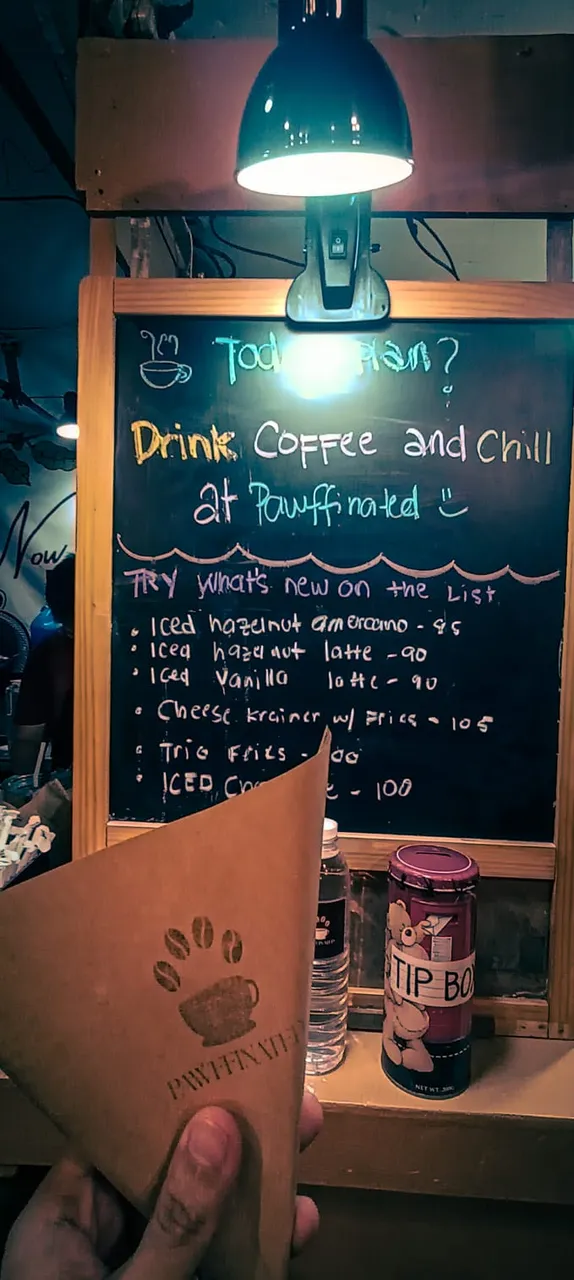 plan?
Drink Coffee and Chill
at Pawffinated
TRY What's new on the List
Iced hazelnut americano - 95
Iced hazelnut latte - 90
Iced Vanilla latte - 90
Cheese Krainer w/ Fries - 105
Trio Fries -
ICED - 100
Now
TIP BO
NET WT.
PAWFFINATED